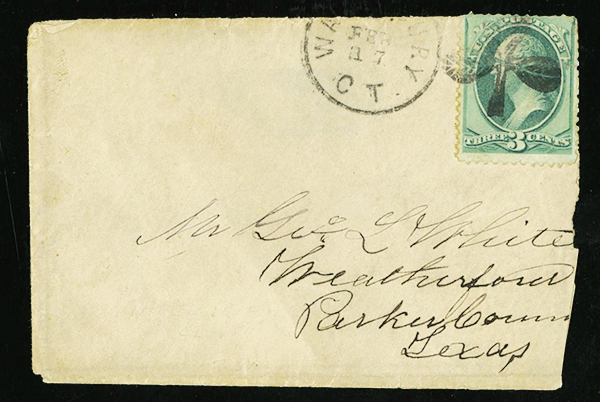 WA
URY
FEB
17
CT.
U.S. POSTAGE
THREE 3 CENTS
Mr Geo L White
Weatherford
Parker Coun
Texas